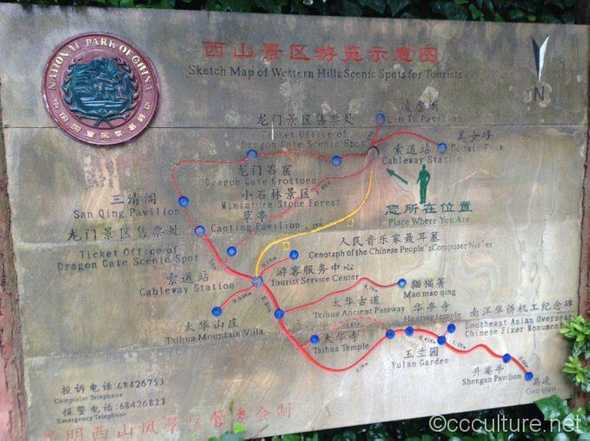 西山景区游览示意图
Sketch Map of Western Hills Scenic Spots for Tourists
NATIONAL PARK OF CHINA
N
龙门景区售票处
Ticket Office of
Dragon Gate Scenic Spot
凌虚阁
索道站
Cableway Station
美女峰
龙门石窟
Dragon Gate Grottoes
小石林景区
Miniature Stone Forest
草亭
三清阁
San Qing Pavilion
您所在位置
Place Where You Are
龙门景区售票处
Ticket Office of
Dragon Gate Scenic Spot
人民音乐家聂耳墓
Cenotaph of the Chinese People's
索道站
Cableway Station
游客服务中心
Tourist Service Center
猫猫箐
Mao mao qing
太华古道
Taihua Ancient Passway
太华山庄
Taihua Mountain Villa
华亭寺
Huating temple
南洋华侨机工纪念碑
Southeast Asian Overseas
Chinese Fixer Monument
太华寺
Taihua Temple
玉兰园
Yulan Garden
升庵亭
Shengan Pavilion
高峣
投诉电话:68426753
Complaint Telephone
报警电话:68426823
Emergency Telephone
©ccculture.net